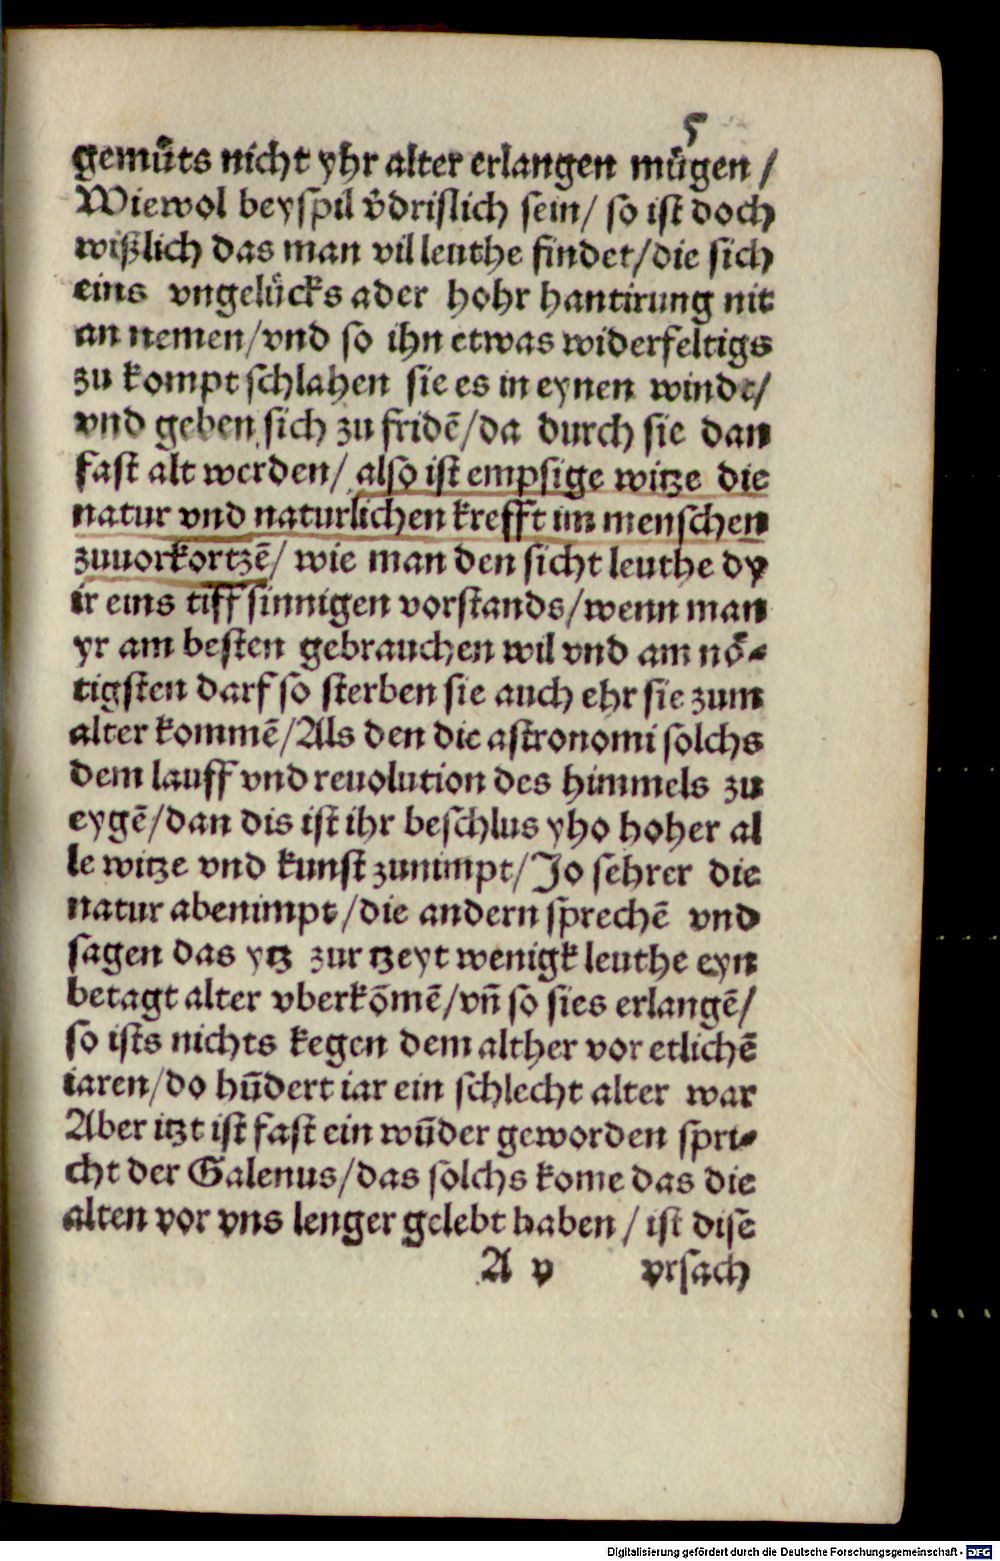 5
gemuͤts nicht yhr alter erlangen muͤgen /
Wiewol beyspil vͦdrislich sein/ so ist doch
wißlich das man vil leuthe findet/die sich
eins vngeluͤcks ader hohr hantirung nit
an nemen/vnd so ihn etwas widerfeltigs
zu kompt schlahen sie es in eynen winde/
vnd geben sich zu fridē/da durch sie dan
fast alt werden/ also ist empsige witze die
natur vnd naturlichen krefft im menschen
zuuorkortzē/ wie man den sicht leuthe dy
ir eins tiff sinnigen vorstands/wenn man
yr am besten gebrauchen wil vnd am noͤ-
tigsten darf so sterben sie auch ehr sie zum
alter kommē/Als den die astronomi solchs
dem lauff vnd reuolution des himmels zu
eygē/dan dis ist ihr beschlus yho hoher al
le witze vnd kunst zunimpt/Jo sehrer die
natur abenimpt/die andern sprechē vnd
sagen das ytz zur tzeyt wenigk leuthe eyn
betagt alter vberkōmē/vn̄ so sies erlangē/
so ists nichts kegen dem alther vor etlichē
iaren/do hūdert iar ein schlecht alter war
Aber itzt ist fast ein wūder geworden spri-
cht der Galenus/das solchs kome das die
alten vor vns lenger gelebt haben / ist dise
A v vrsach
Digitalisierung gefördert durch die Deutsche Forschungsgemeinschaft - DFG